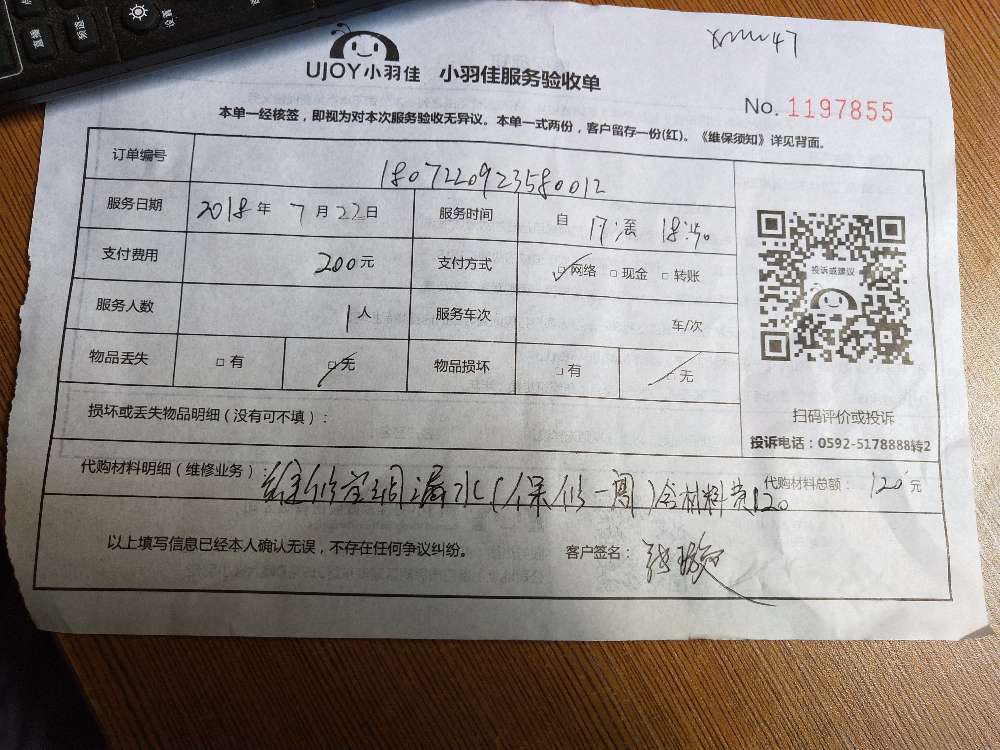 直播
频道
设置
xmw47
UJOY小羽佳 小羽佳服务验收单
No. 1197855
本单一经核签，即视为对本次服务验收无异议。本单一式两份，客户留存一份(红)。《维保须知》详见背面。
订单编号 1807220923580012
服务日期 2018年 7月22日 服务时间 自 17: 至 18:40
支付费用 200元 支付方式 ☑网络 □现金 □转账
投诉或建议
服务人数 1人 服务车次 车/次
物品丢失 □有 ☑无 物品损坏 □有 ☑无
扫码评价或投诉
损坏或丢失物品明细（没有可不填）：
投诉电话：0592-5178888转2
代购材料明细（维修业务）： 维修 漏水（保修一周）含材料费120 代购材料总额： 120元
以上填写信息已经本人确认无误，不存在任何争议纠纷。 客户签名： 张